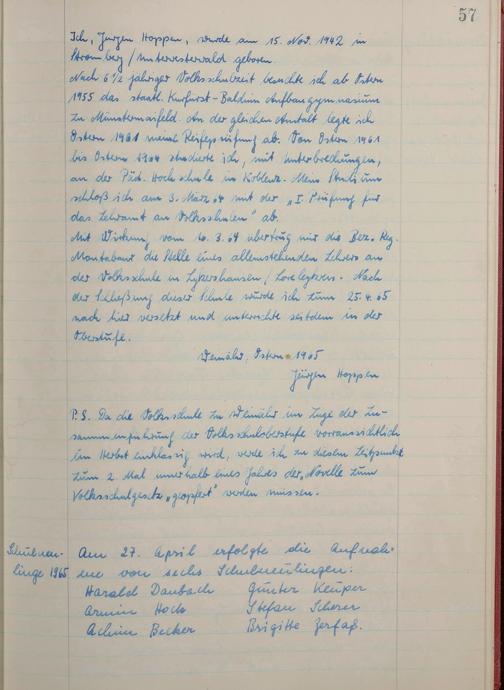 57
Ich, Jürgen Hoppen, wurde am 15. Nov. 1942 in
Stromberg / Unterwesterwald geboren.
Nach 6 1/2 jähriger Volksschulzeit besuchte ich ab Ostern
1955 das staatl. Kurfürst-Balduin Aufbaugymnasium
zu Münstermaifeld. An der gleichen Anstalt legte ich
Ostern 1961 meine Reifeprüfung ab. Von Ostern 1961
bis Ostern 1964 studierte ich, mit Unterbrechungen,
an der Päd. Hochschule in Koblenz. Mein Studium
schloß ich am 3. März 64 mit der „I. Prüfung für
das Lehramt an Volksschulen" ab.
Mit Wirkung vom 10.3.64 übertrug mir die Bez. Reg.
Montabaur die Stelle eines alleinstehenden Lehrers an
der Volksschule in Lykershausen / Loreleykreis. Nach
der Schließung dieser Schule wurde ich zum 25.4.65
nach hier versetzt und unterrichte seitdem in der
Oberstufe.
Weinähr, Ostern 1965
Jürgen Hoppen
P.S. Da die Volksschule zu Weinähr im Zuge der Zu-
sammenführung der Volksschuloberstufe vorraussichtlich
im Herbst einklassig wird, werde ich zu diesem Zeitpunkt
zum 2. Mal innerhalb eines Jahres der „Novelle zum
Volksschulgesetz „geopfert" werden müssen.
Schulneu-
linge 1965
Am 27. April erfolgte die Aufnah-
me von sechs Schulneulingen:
Harald Daubach Günter Keuper
Armin Hock Stefan Scherer
Achim Becker Brigitte Zerfaß.